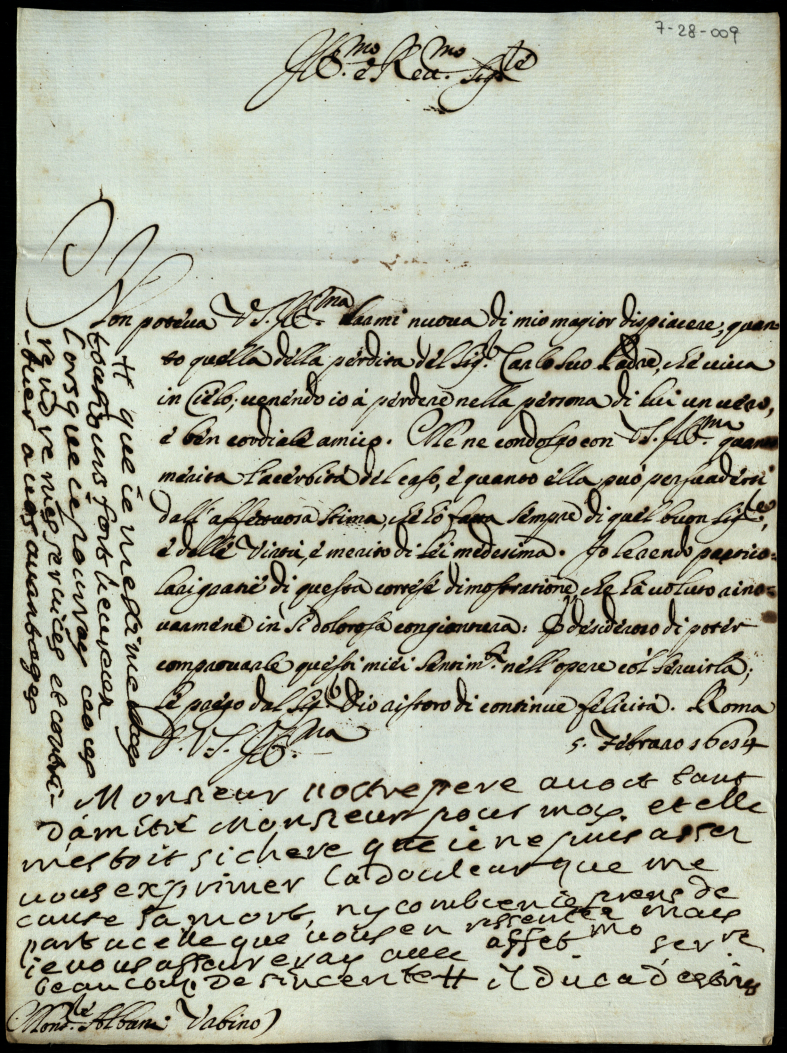 7-28-009
Ill.mo e Reu.mo Sig.re
Non poteua V. S. Ill.ma darmi nuoua di mio magior dispiacere, quan
to quella della perdita del Sig.r Carlo suo Padre, che uiua
in Cielo; uenendo io à perdere nella persona di lui un uero,
è ben cordiale amico. Me ne condolgo con V. S. Ill.ma quanto
merita l'acerbità del caso, è quanto ella può persuadersi
dall'affettuosa stima, che hò fatta sempre di quel buon Sig.re,
è delle Virtù, è merito di lei medesima. Io le rendo partico-
lari gratie di questa cortese dimostratione, che hà uoluto
in sì dolorosa congiontura: È desideroso di poter
comprouarle questi miei sentim.ti nell'opere col seruirla;
le prego dal Sig.r Dio ristoro di continue felicità. Roma
5. Febraro 1654
D. V. S. Ill.ma
Monsieur vostre pere avoit tant
d'amitié Monsieur pour moy. et elle
m'estoit si chere que ie ne puis asser
vous exprimer la douleur que me
cause sa mort, ny combien ie prens de
part a celle que vous en ressentés mais
ie vous asseureray avec
beaucoup de sincerité #
# que ie m'estimeray
tousiours fort heureux
lors que ie pourray
rendre mes services et contri-
buer a vos avantages
affet.mo ser.re
il duca
Mons.re Albani Vrbino)